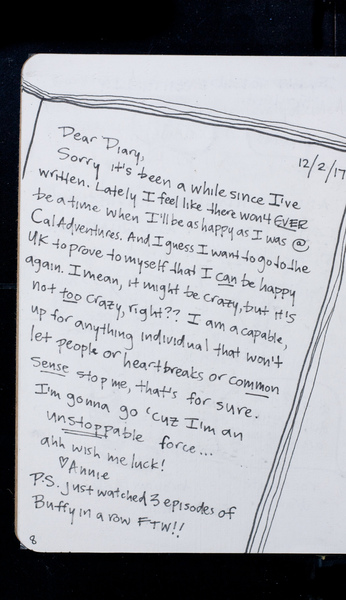 Dear Diary,
12/2/17
Sorry it's been a while since I've
written. Lately I feel like there won't EVER
be a time when I'll be as happy as I was @
Cal Adventures. And I guess I want to go to the
UK to prove to myself that I can be happy
again. I mean, it might be crazy, but it's
not too crazy, right?? I am a capable,
up for anything individual that won't
let people or heartbreaks or common
sense stop me, that's for sure.
I'm gonna go 'cuz I'm an
unstoppable force...
ahh wish me luck!
♡Annie
P.S. just watched 3 episodes of
Buffy in a row FTW!!
8